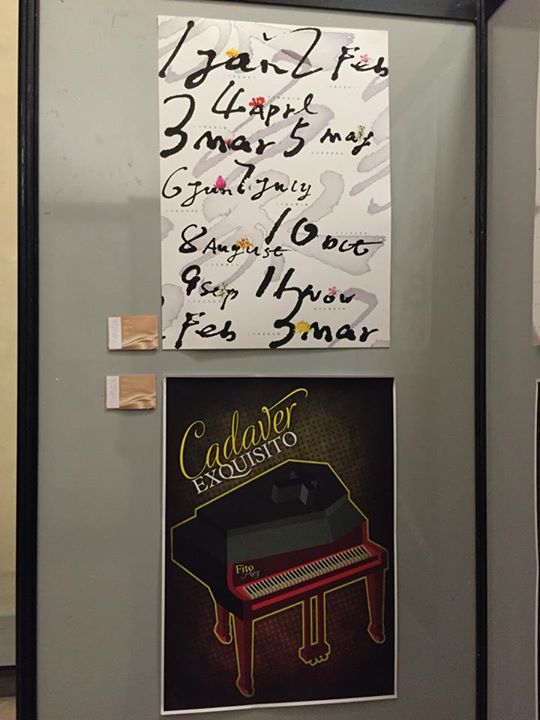 1 jan 2 Feb
4 aprl
3 mar 5 may
6 jun 7 july
10 oct
8 August
9 sep 11 nov
Feb 3 mar
Cadaver
EXQUISITO
Fito